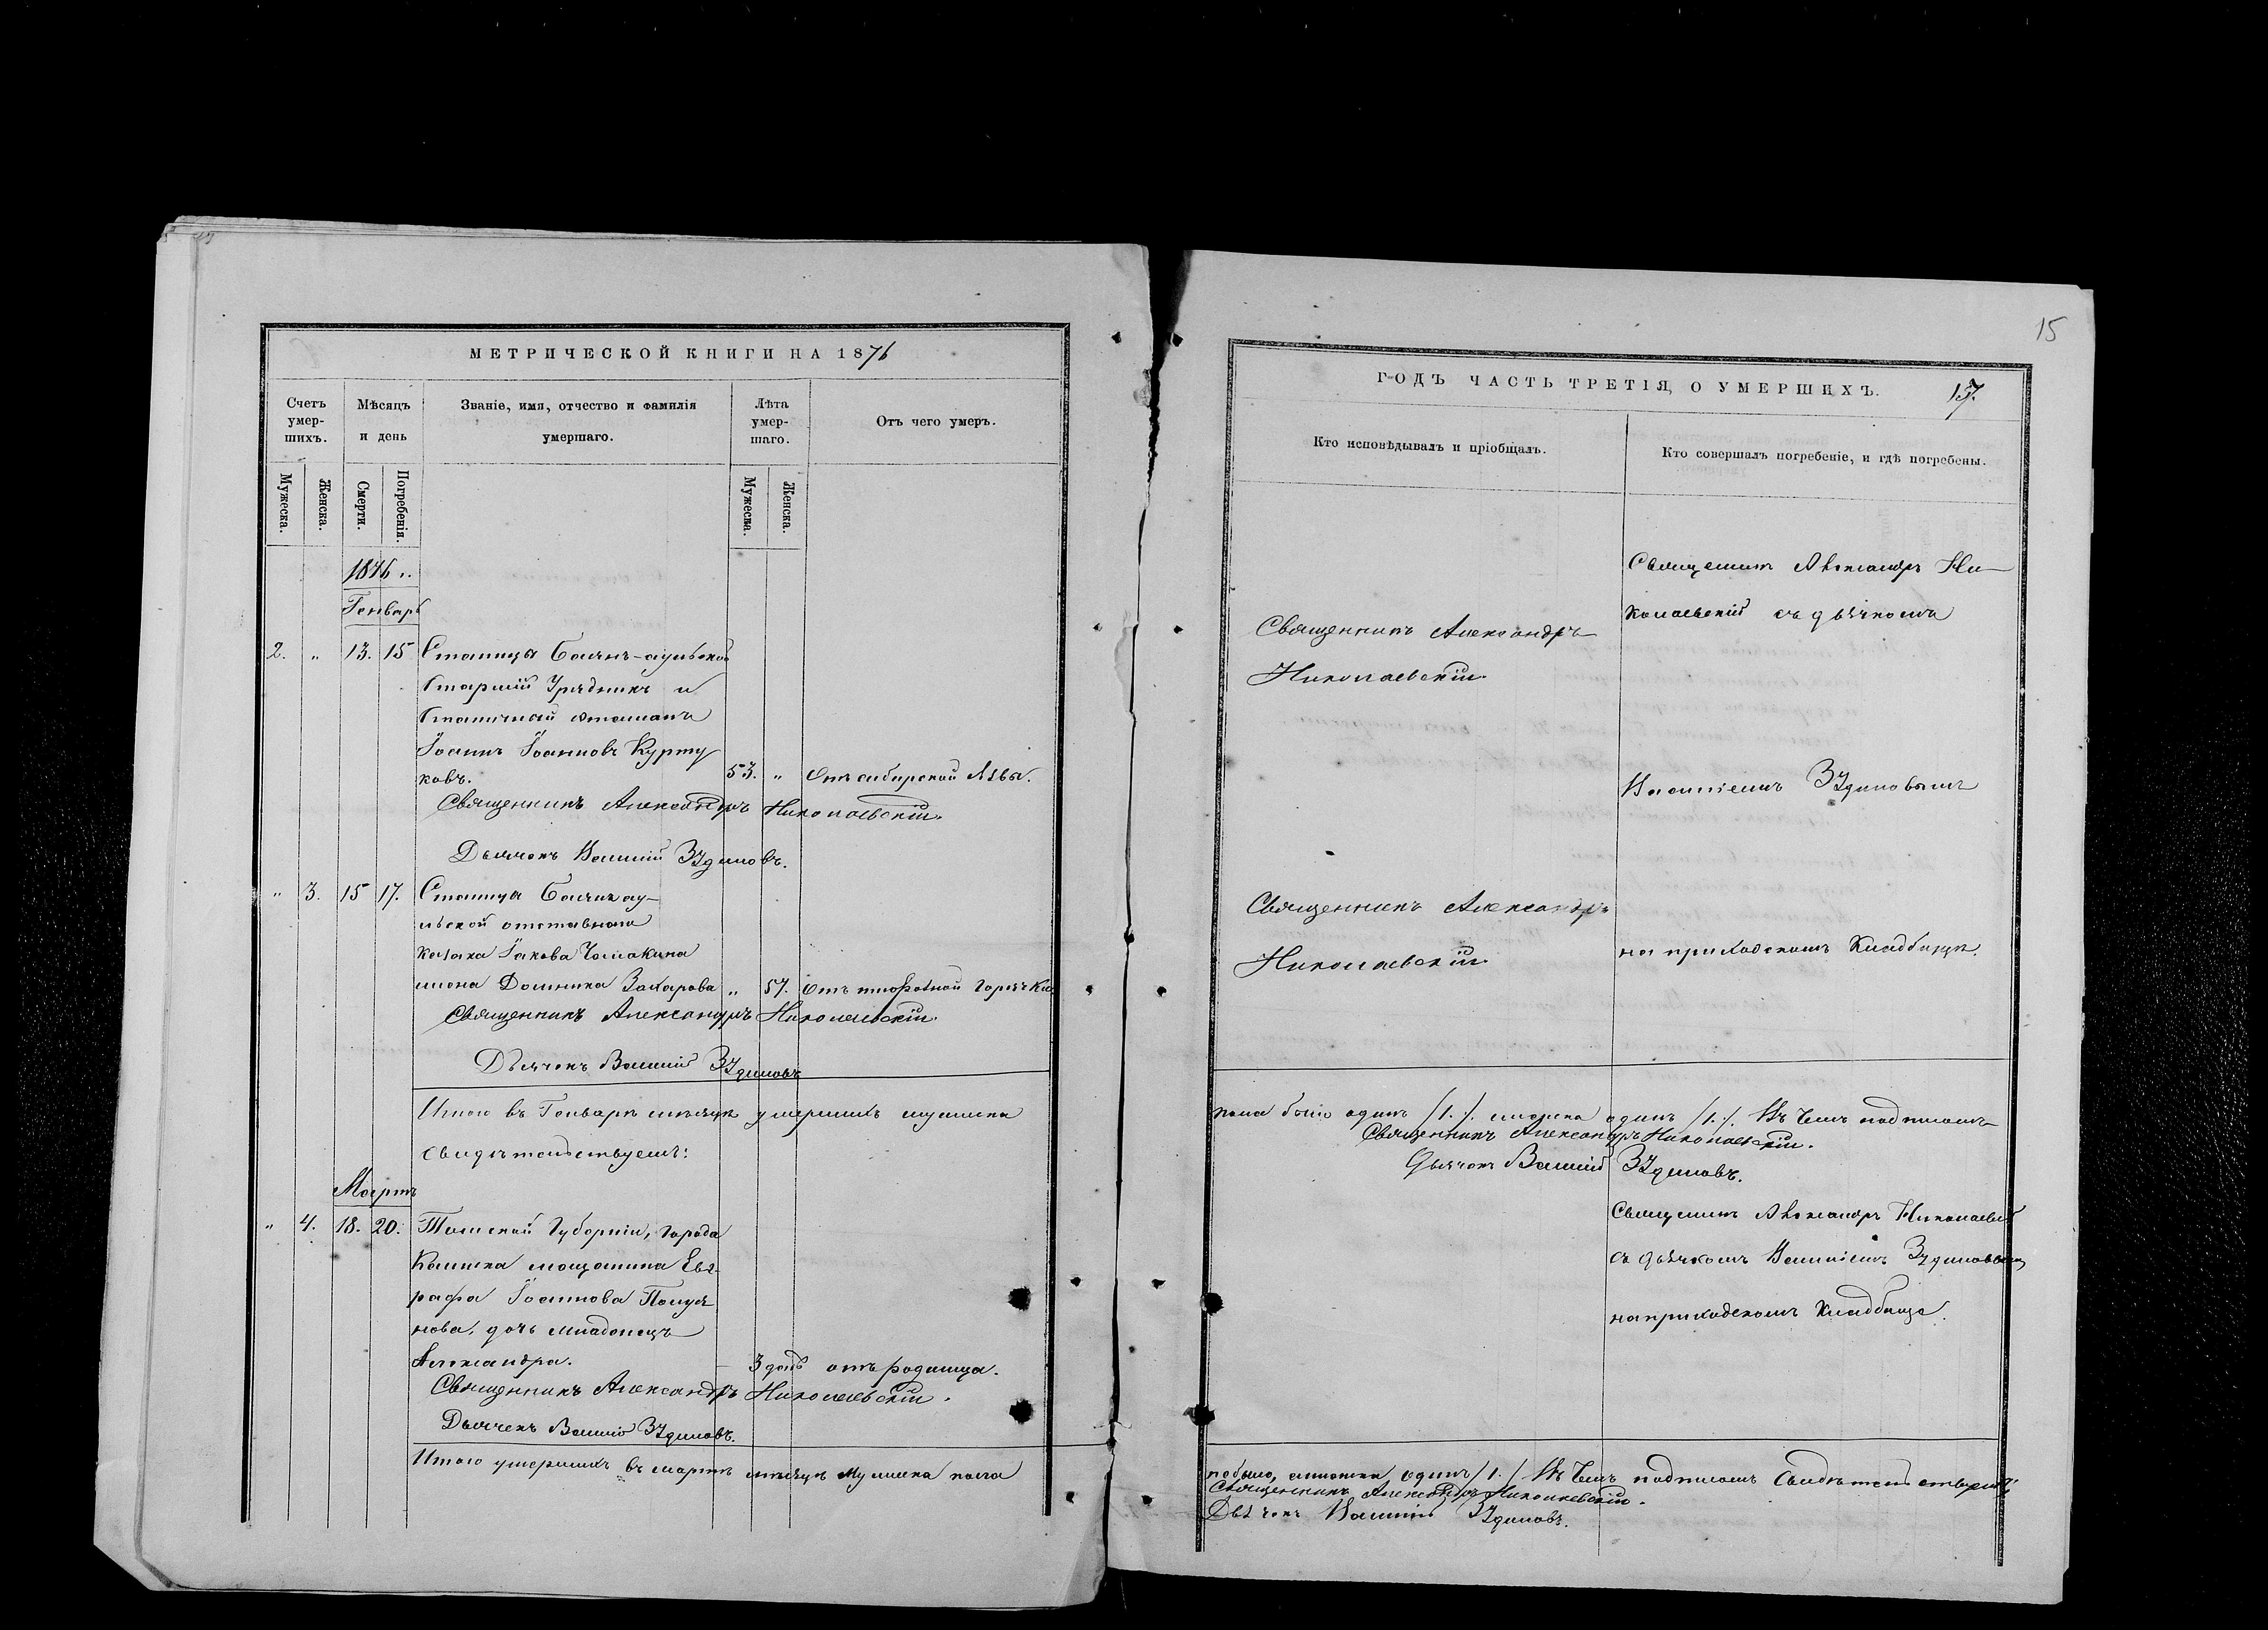 МЕТРИЧЕСКОЙ КНИГИ НА 1876
Счетъ умер-шихъ.
Мѣсяцъ и день
Званіе, имя, отчество и фамилія умершаго.
Лѣта умер-шаго.
Отъ чего умеръ.
Мужеска.
Женска.
Смерти.
Погребенія.
Мужеска.
Женска.
1876 г.
Генварь
2. " 13. 15 Станицы Баянъ-аульской
старшій Урядникъ и
станичный атаманъ
Іоаннъ Іоанновъ Курту
ковъ. 53. " Отъ сибирской язвы.
Священникъ Александръ Николаевскій.
Дьячекъ Василій
" 3. 15 17. Станицы Баянъ ау-
льской отставнаго
казака Іакова
жена Домника Захарова " 57. Отъ тифозной горячки
Священникъ Александръ Николаевскій.
Дьячекъ Василій
Итого въ Генварѣ мѣсяцѣ умершихъ мужеска
свидѣтельствуемъ:
Мартъ
" 4. 18. 20. Томской Губерніи, города
Каинска мѣщанина Евг
рафа Іоаннова
нова, дочь младенецъ
Александра. 3 дней отъ родимца.
Священникъ Александръ Николаевскій.
Дьячекъ Василій
Итого умершихъ въ мартѣ мѣсяцѣ мужеска пола
15
ГОДЪ ЧАСТЬ ТРЕТІЯ, О УМЕРШИХЪ.
Кто исповѣдывалъ и пріобщалъ.
Кто совершалъ погребеніе, и гдѣ погребены.
Священникъ Александръ
Николаевскій.
Священникъ Александръ Ни-
колаевскій съ дьячкомъ
Василіемъ
Священникъ Александръ
Николаевскій.
на приходскомъ кладбищѣ.
пола было одинъ /1./. женска одинъ /1./. Въ чемъ подписомъ
Священникъ Александръ Николаевскій.
Дьячекъ Василій
Священникъ Александръ Николаевскій
съ дьячкомъ Василіемъ
на приходскомъ кладбищѣ.
не было, женска, одинъ /1./ Въ чемъ подписомъ свидѣтельствуемъ:
Священникъ Александръ Николаевскій.
Дьячекъ Василій